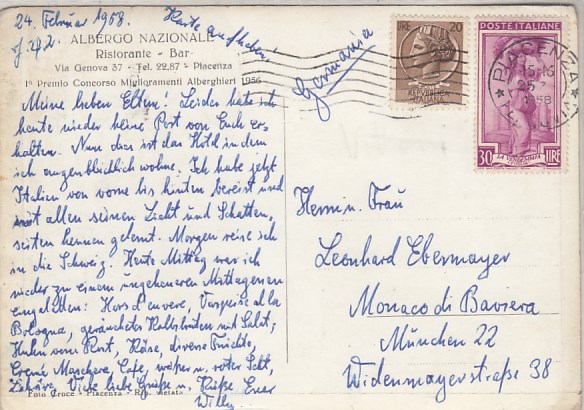 24. Februar 1958.
Karte aufheben!
Germania
ALBERGO NAZIONALE
Ristorante - Bar
Via Genova 37 - Tel. 22.87 - Piacenza
1° Premio Concorso Miglioramenti Alberghieri 1956
Meine lieben Eltern! Leider habe ich
heute wieder keine Post von Euch er-
halten. Nun dies ist das Hotel in dem
ich augenblicklich wohne. Ich habe jetzt
Italien von vorne bis hinten bereist und
mit allen seinen Licht und Schatten-
seiten kennen gelernt. Morgen reise ich
in die Schweiz. Heute Mittag war ich
wieder zu einem ungeheueren Mittagessen
eingeladen: Hors d'oeuvre, alla
Bologna, geräuchertes mit Salat,
Huhn vom Rost, Käse, diverse Früchte,
Creme Maschera, Cafe, weißer u. roter Sekt,
Viele liebe Grüße u. Küße Euer
Willy
Foto Croce - Piacenza - Rip. Vietata
LIRE 20
REPVBBLICA
ITALIANA
POSTE ITALIANE
30 LIRE
PIACENZA
15-16
25
1958
Herrn u. Frau
Leonhard Ebermayer
Monaco di Baviera
München 22
Widenmayerstraße 38